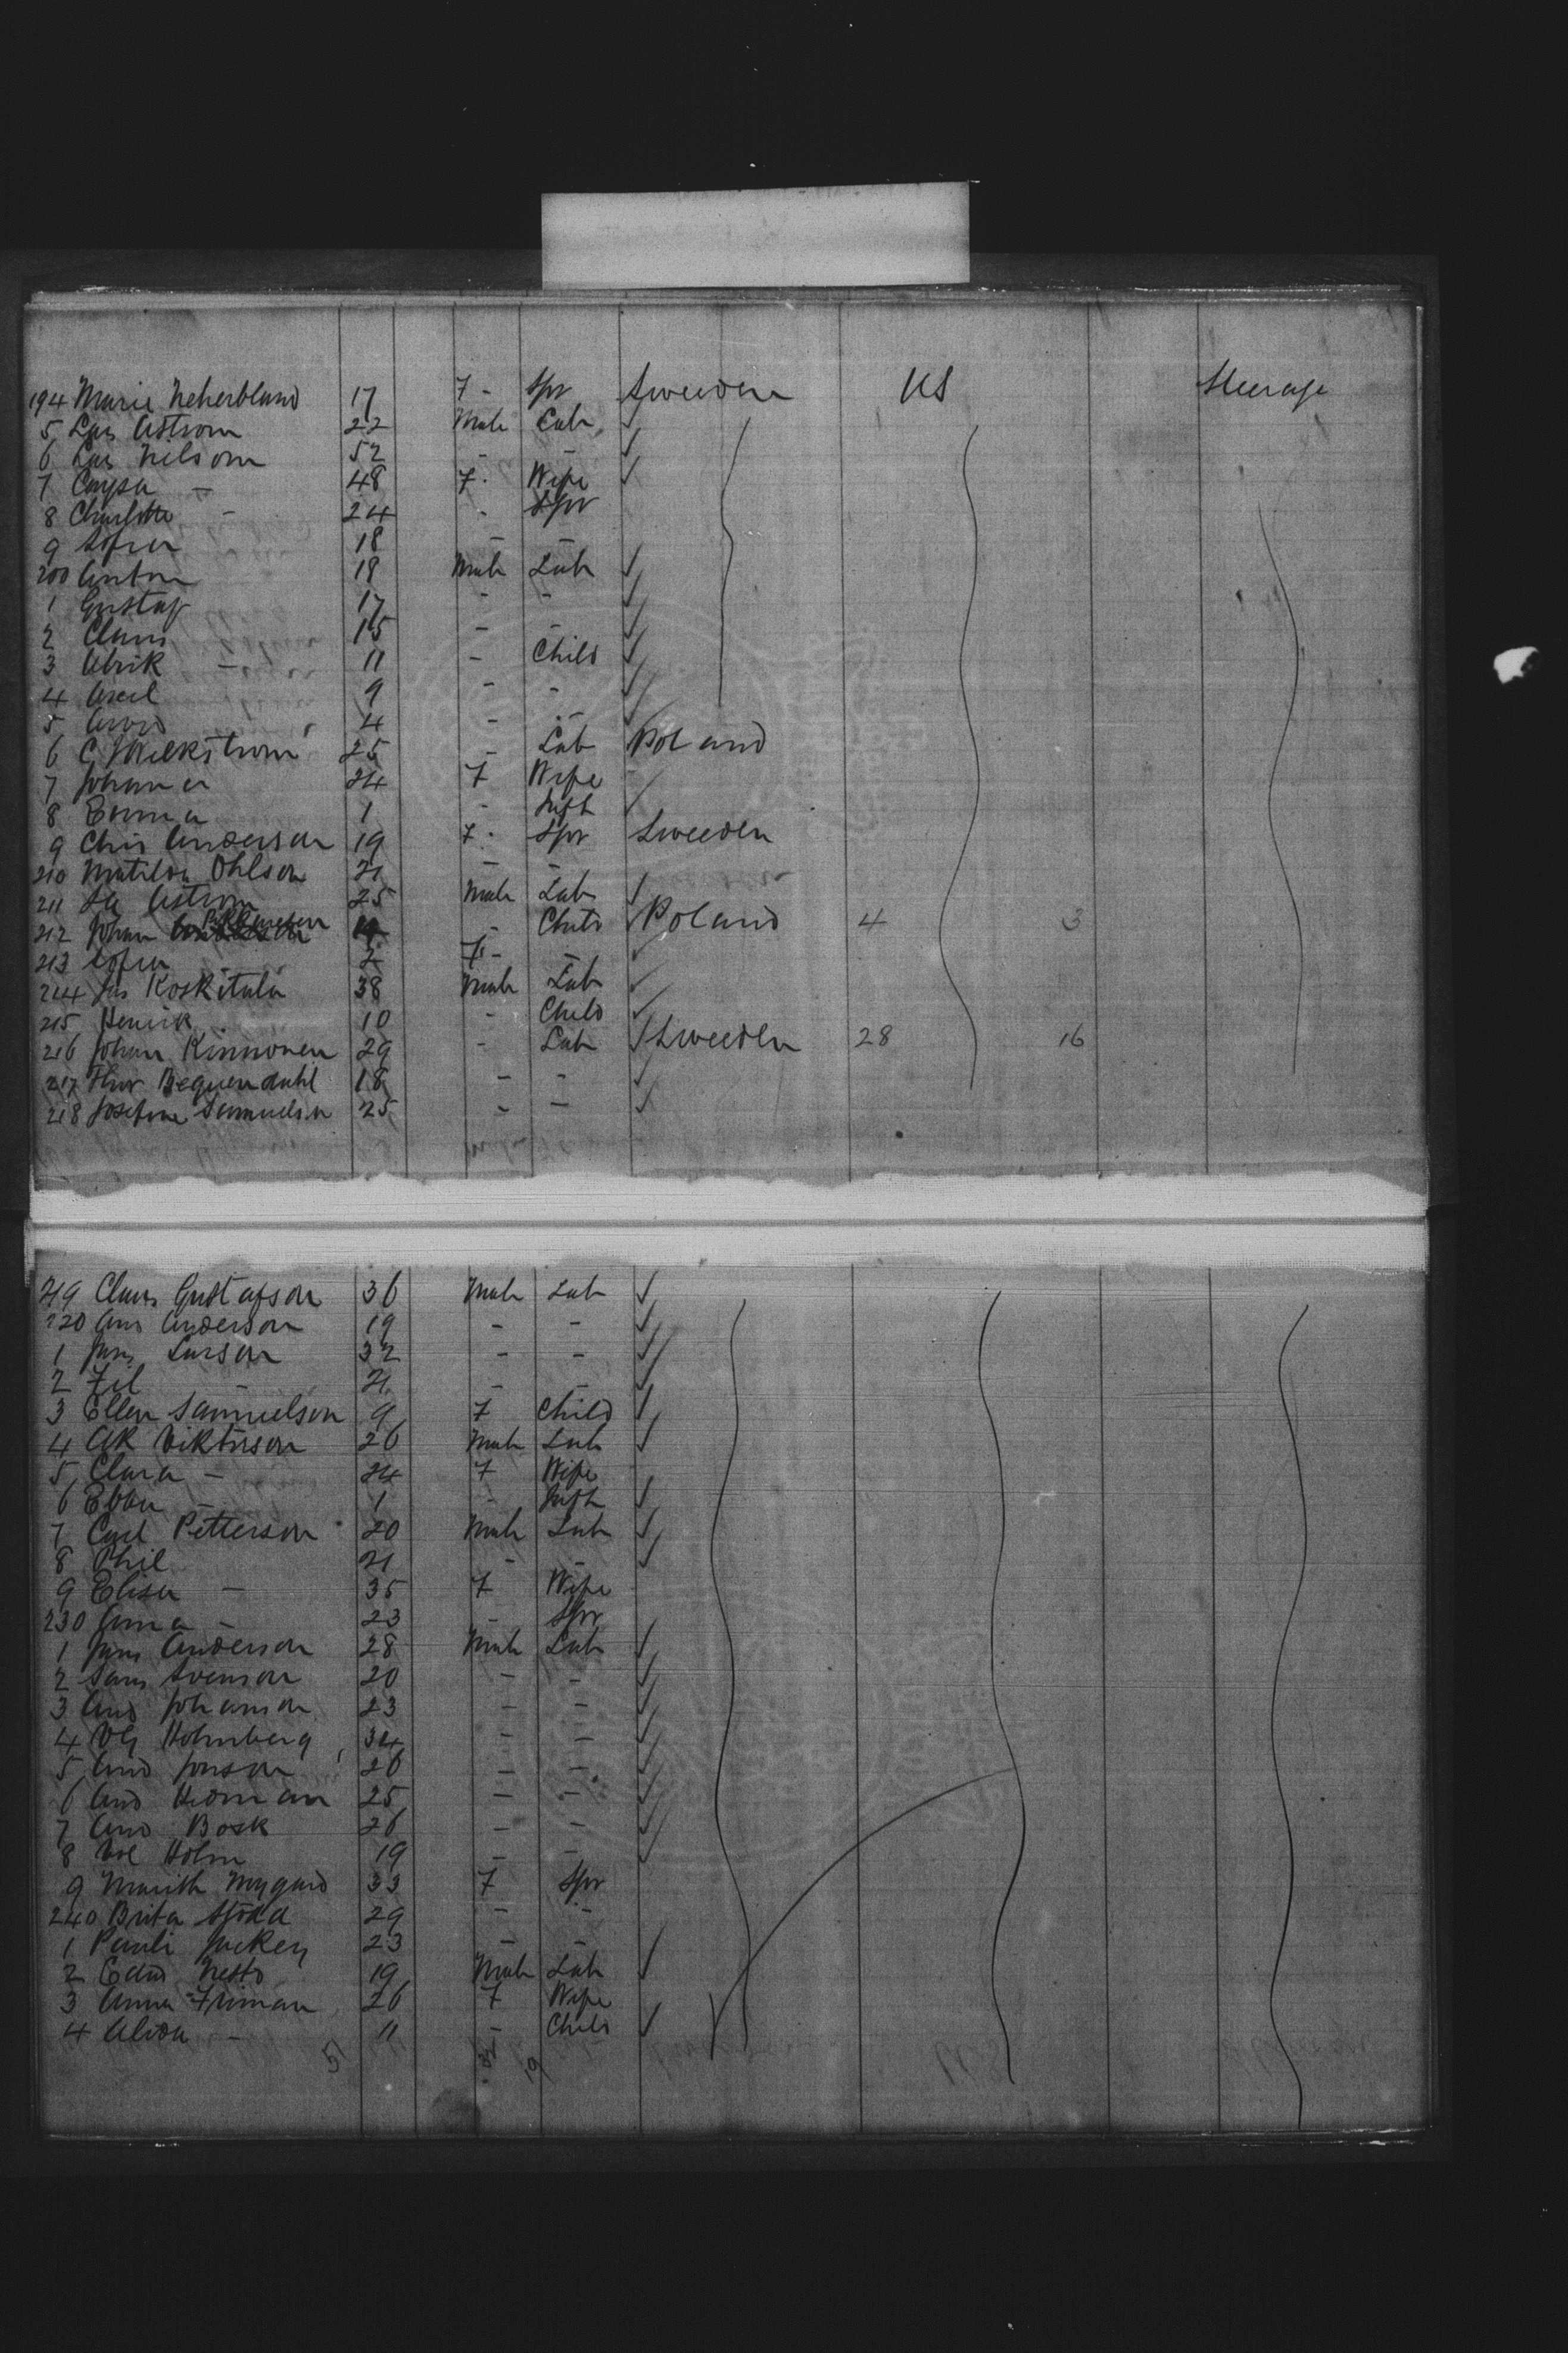 194 Marie 17 F - Spr Sweeden US Steerage
5 Lars Astrom 22 Male Lab ✓
6 Lars Nilsom 52 - - ✓
7 Caysa - 48 F. Wife ✓
8 Charlotte - 24 - Spr
9 Sofia 18 - -
200 Anton 18 Male Lab ✓
1 Gustaf 17 - - ✓
2 Claus 15 - - ✓
3 Alrik - 11 - Child ✓
4 Axel 9 - - ✓
5 Arvid 4 - - ✓
6 C Wilkstrom 25 - Lab Poland
7 Johanna 24 F Wife
8 Emma 1 - Inft ✓
9 Chris Anderson 19 F. Spr Sweeden
210 Matilda Ohlson 21 - -
211 Astrom 25 Male Lab ✓
212 Johan - Child ✓ Poland 4 3
213 Sofia 2 F - - ✓
214 Jas Koskitala 38 Male Lab ✓
215 Henrik 10 - Child ✓
216 Johan Kinnonen 29 - Lab ✓ Sweeden 28 16
217 Thor Beguendahl 18 - - ✓
218 Josefine Samuelson 25 - - ✓
219 Claus Gustafson 36 Male Lab ✓
220 Ans Anderson 19 - - ✓
1 Jans Larson 32 - - ✓
2 Fil - 21 - - ✓
3 Ellen Samuelson 9 F Child ✓
4 AK Viktorson 26 Male Lab ✓
5 Clara - 24 F Wife
6 Ebba - 1 - Inft ✓
7 Carl Petterson 20 Male Lab ✓
8 Phil 21 - - ✓
9 Elisa - 35 F Wife
230 Anna - 23 - Spr
1 Jans Anderson 28 Male Lab ✓
2 Sams Svenson 20 - - ✓
3 And Johanson 23 - - ✓
4 VG Holmberg 34 - - ✓
5 And Jonson 26 - - ✓
6 And Hedman 25 - - ✓
7 And Bosk 26 - - ✓
8 Vol Holm 19 - - ✓
9 Marith Mygard 33 F Spr
240 Brita 29 - -
1 Pauli 23 - - ✓
2 Edwd Nesto 19 Male Lab ✓
3 Anna Friman 26 F Wife
4 Alida - 11 - Child ✓
51 32 19